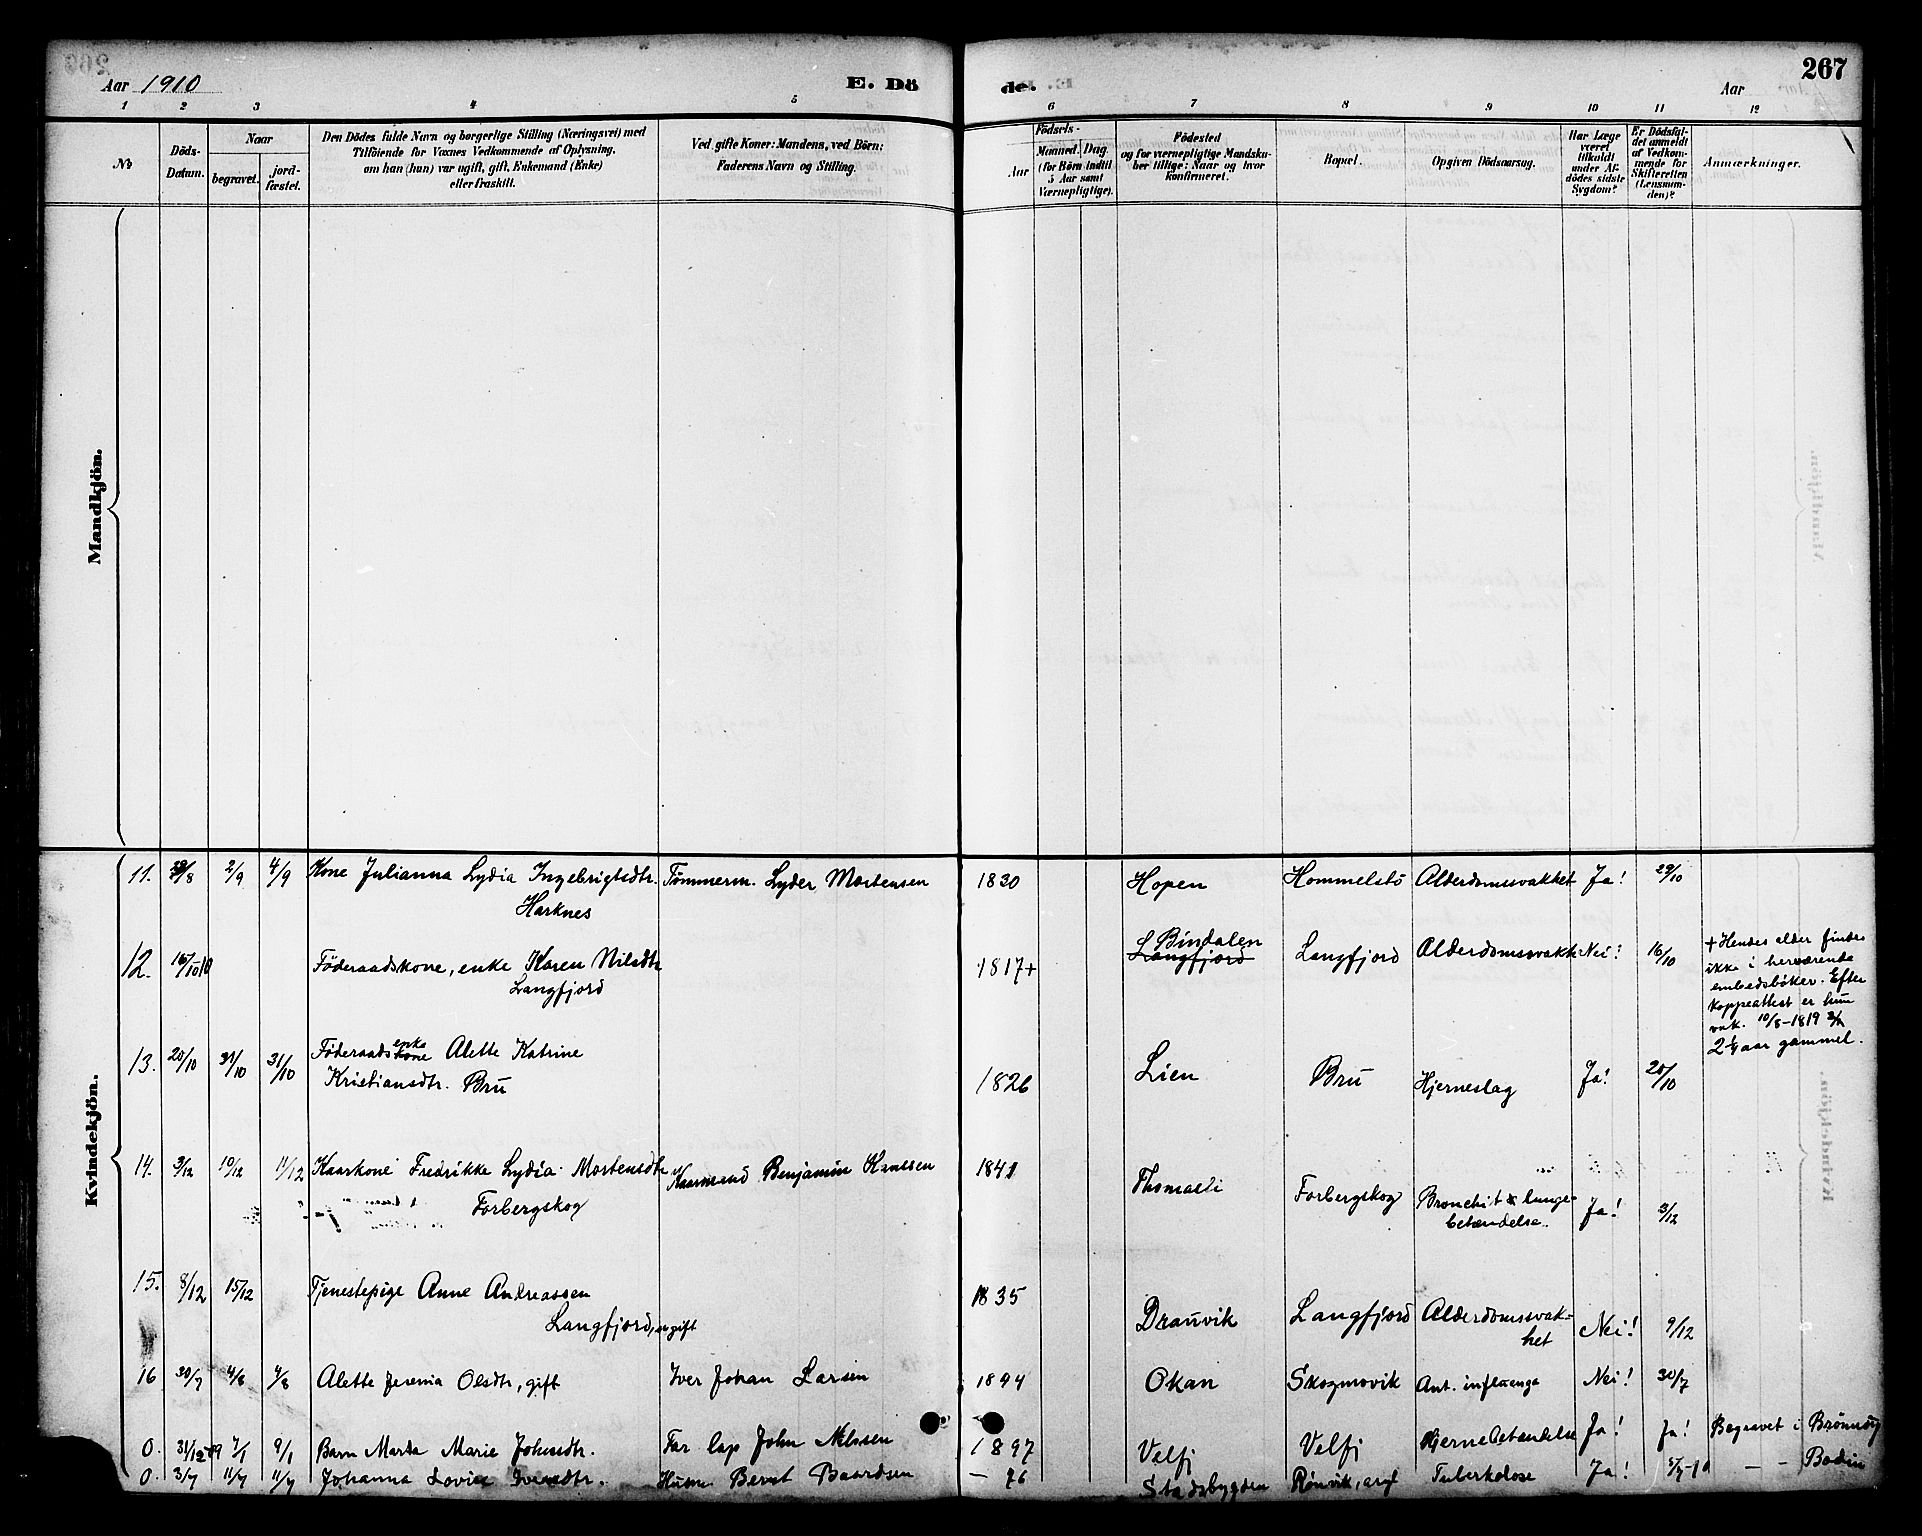 Aar 1910
E. Dö
de.
Aar
267
1 2 3 4 5 6 7 8 9 10 11 12
No
Döds-Datum.
Naar
begravet.
jord-fæstet.
Den Dödes fulde Navn og borgerlige Stilling (Næringsvei) med
Tilföiende for Voxnes Vedkommende af Oplysning,
om han (hun) var ugift, gift, Enkemand (Enke)
eller fraskilt.
Ved gifte Koner: Mandens, ved Börn:
Faderens Navn og Stilling.
Födsels-
Aar
Maaned. Dag
(for Börn indtil
5 Aar samt
Værnepligtige).
Födested
og for værnepligtige Mandska-
ber tillige: Naar og hvor
konfirmeret.
Bopæl.
Opgiven Dödsaarsag.
Har Læge
været
tilkaldt
under Af-
dödes sidste
Sygdom?
Er Dödsfal-
det anmeldt
af Vedkom-
mende for
Skifteretten
(Lensman-
den)?
Anmærkninger.
Mandkjön.
Kvindekjön.
11. /8 2/9 4/9 Kone Julianna Lydia Ingebrigtsdtr. Tömmerm. Lyder Mortensen 1830 Hopen Hommelstö Alderdomssvakhet Ja! 29/10
Harknes
12. 16/10 10 Föderaadskone, enke Karen Nilsdtr 1817+ Bindalen Langfjord Alderdomssvakh Nei! 16/10
Langfjord
Langfjord
+ Hendes alder findes
ikke i herværende
embedsböker. Efter
koppeattest er hun
vak. 10/8-1819
2 1/4 aar gammel.
13. 20/10 31/10 31/10 Föderaads enke kone Alette Katrine
Kristiansdtr. Bru 1826 Lien Bru Hjerneslag Ja! 20/10
14. 3/12 10/12 11/12 Kaarkone Fredrikke Lydia Mortensdtr Kaarmand Benjamin Hanssen 1841 Thomasli Forbergskog Bronchit & lunge-
betændelse. Ja! 3/12
Forbergskog
15. 8/12 15/12 Tjenestepige Anne Andreassen 1835
Langfjord, ugift Drauvik Langfjord Alderdomssvak-
het Nei! 9/12
16 30/7 4/8 4/8 Alette Jeremia Olsdtr, gift Iver Johan Larsen 1894 Okan Skogmovik Ant. influenza Nei! 30/7
0. 31/12-09 7/1 9/1 Barn Marta Marie Johnsdtr. Far lap John Nilssen 1897 Velfj Velfj Hjernebetændelse Ja! Ja! Begravet i Brönnöy
0. 3/7 11/7 11/7 Johanna Lovise Iversdtr. Husm Bernt Baardsen — 76 Stadsbygden Rönvik, asyl Tuberkolose Ja! 5/7-10 — — Bodin